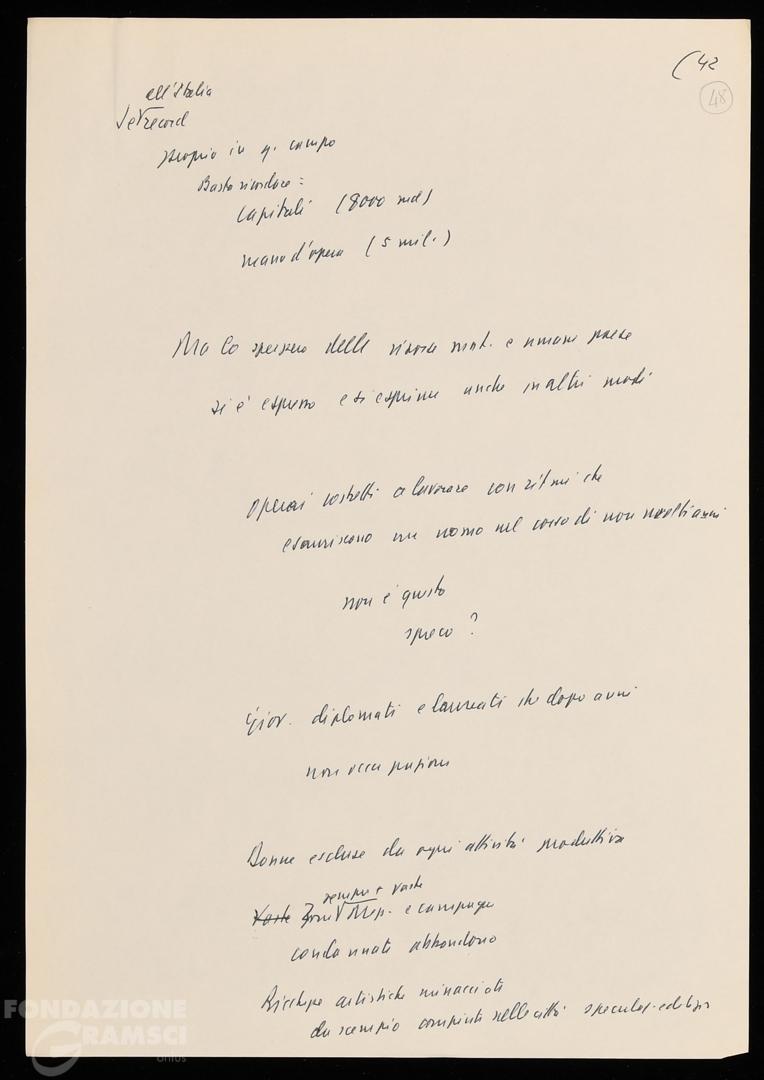 (42
48
all'Italia
record
proprio in q. campo
Basta ricordare:
capitali (8000 md)
mano d'opera (5 mil.)
Ma lo spreco delle risorse mat. e umane paese
si è espresso e si esprime anche in altri modi
operai costretti a lavorare con ritmi che
esauriscono un uomo nel corso di non molti anni
non è questo
spreco?
Giov. diplomati e laureati che dopo anni
non occupazione
Donne escluse da ogni attività produttiva
sempre + vaste
Vaste zone Mer. e campagne
condannate abbandono
Ricchezze artistiche minacciate
da scempio compiuto nelle città speculaz. edilizia
FONDAZIONE
GRAMSCI
onlus